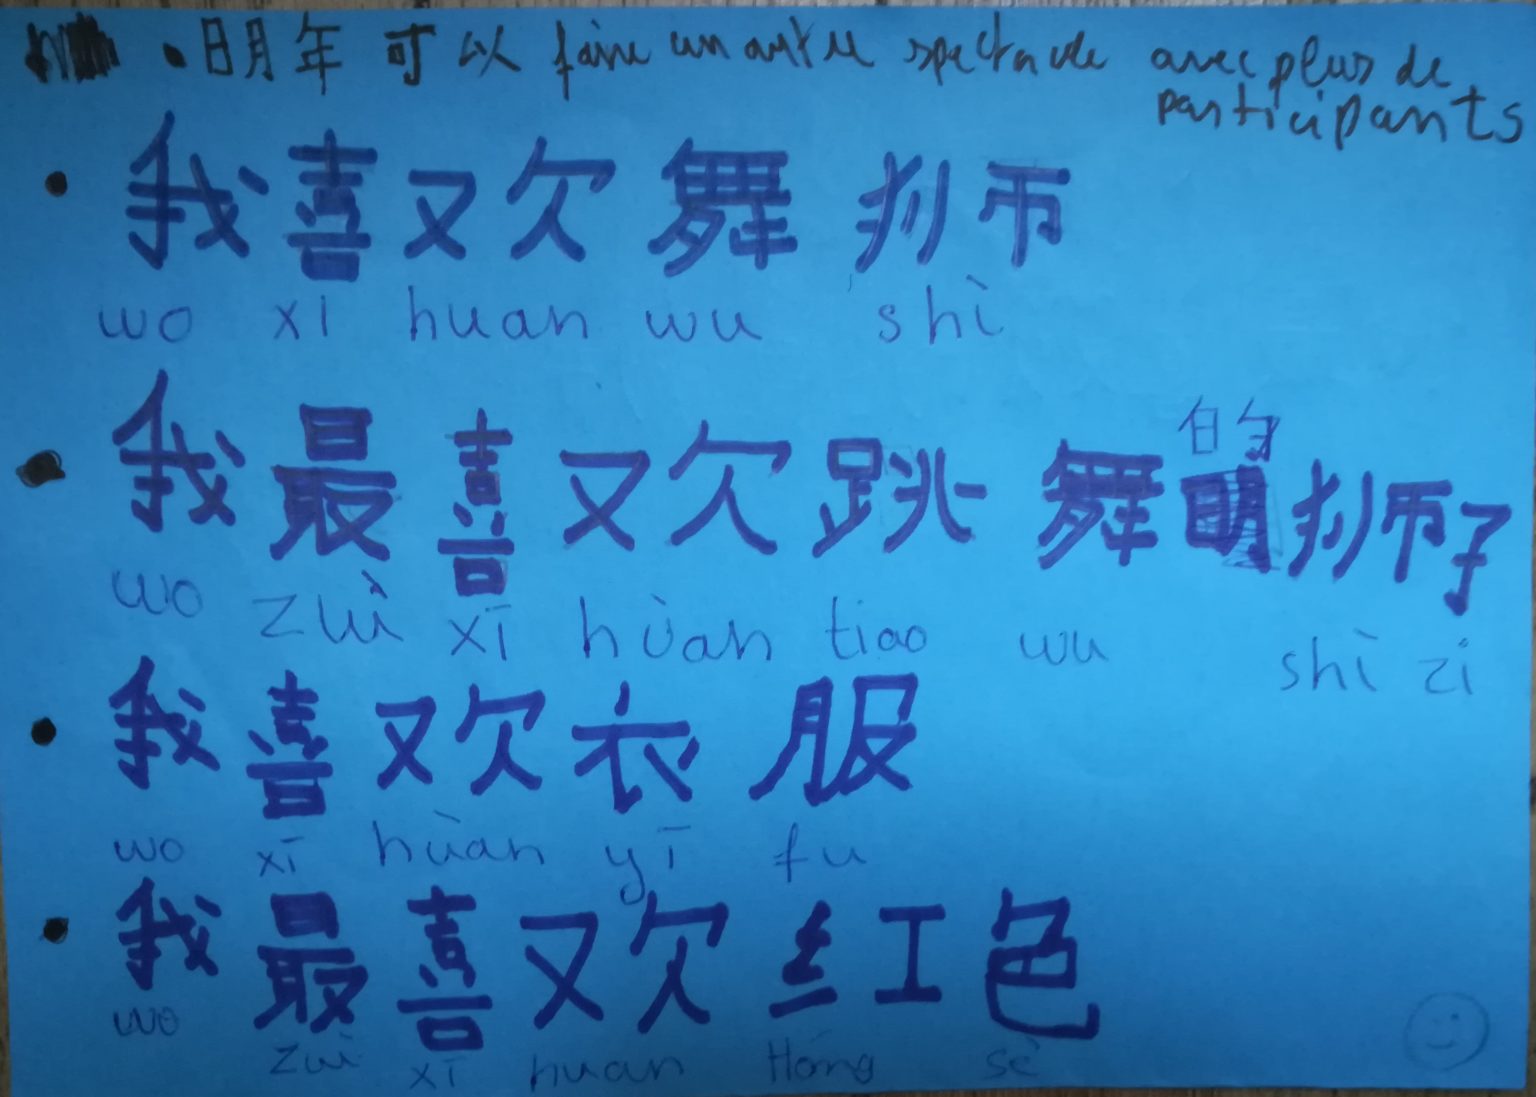 • 明年 可以 faire un autre spectacle avec plus de
participants
• 我喜欢舞 狮
wo xi huan wu shì
的
• 我最喜欢跳 舞 狮子
wo zuì xī hùan tiao wu shì zi
• 我喜欢衣服
wo xī hùan yī fu
• 我最喜欢红色
wo zuì xī huan Hóng sè